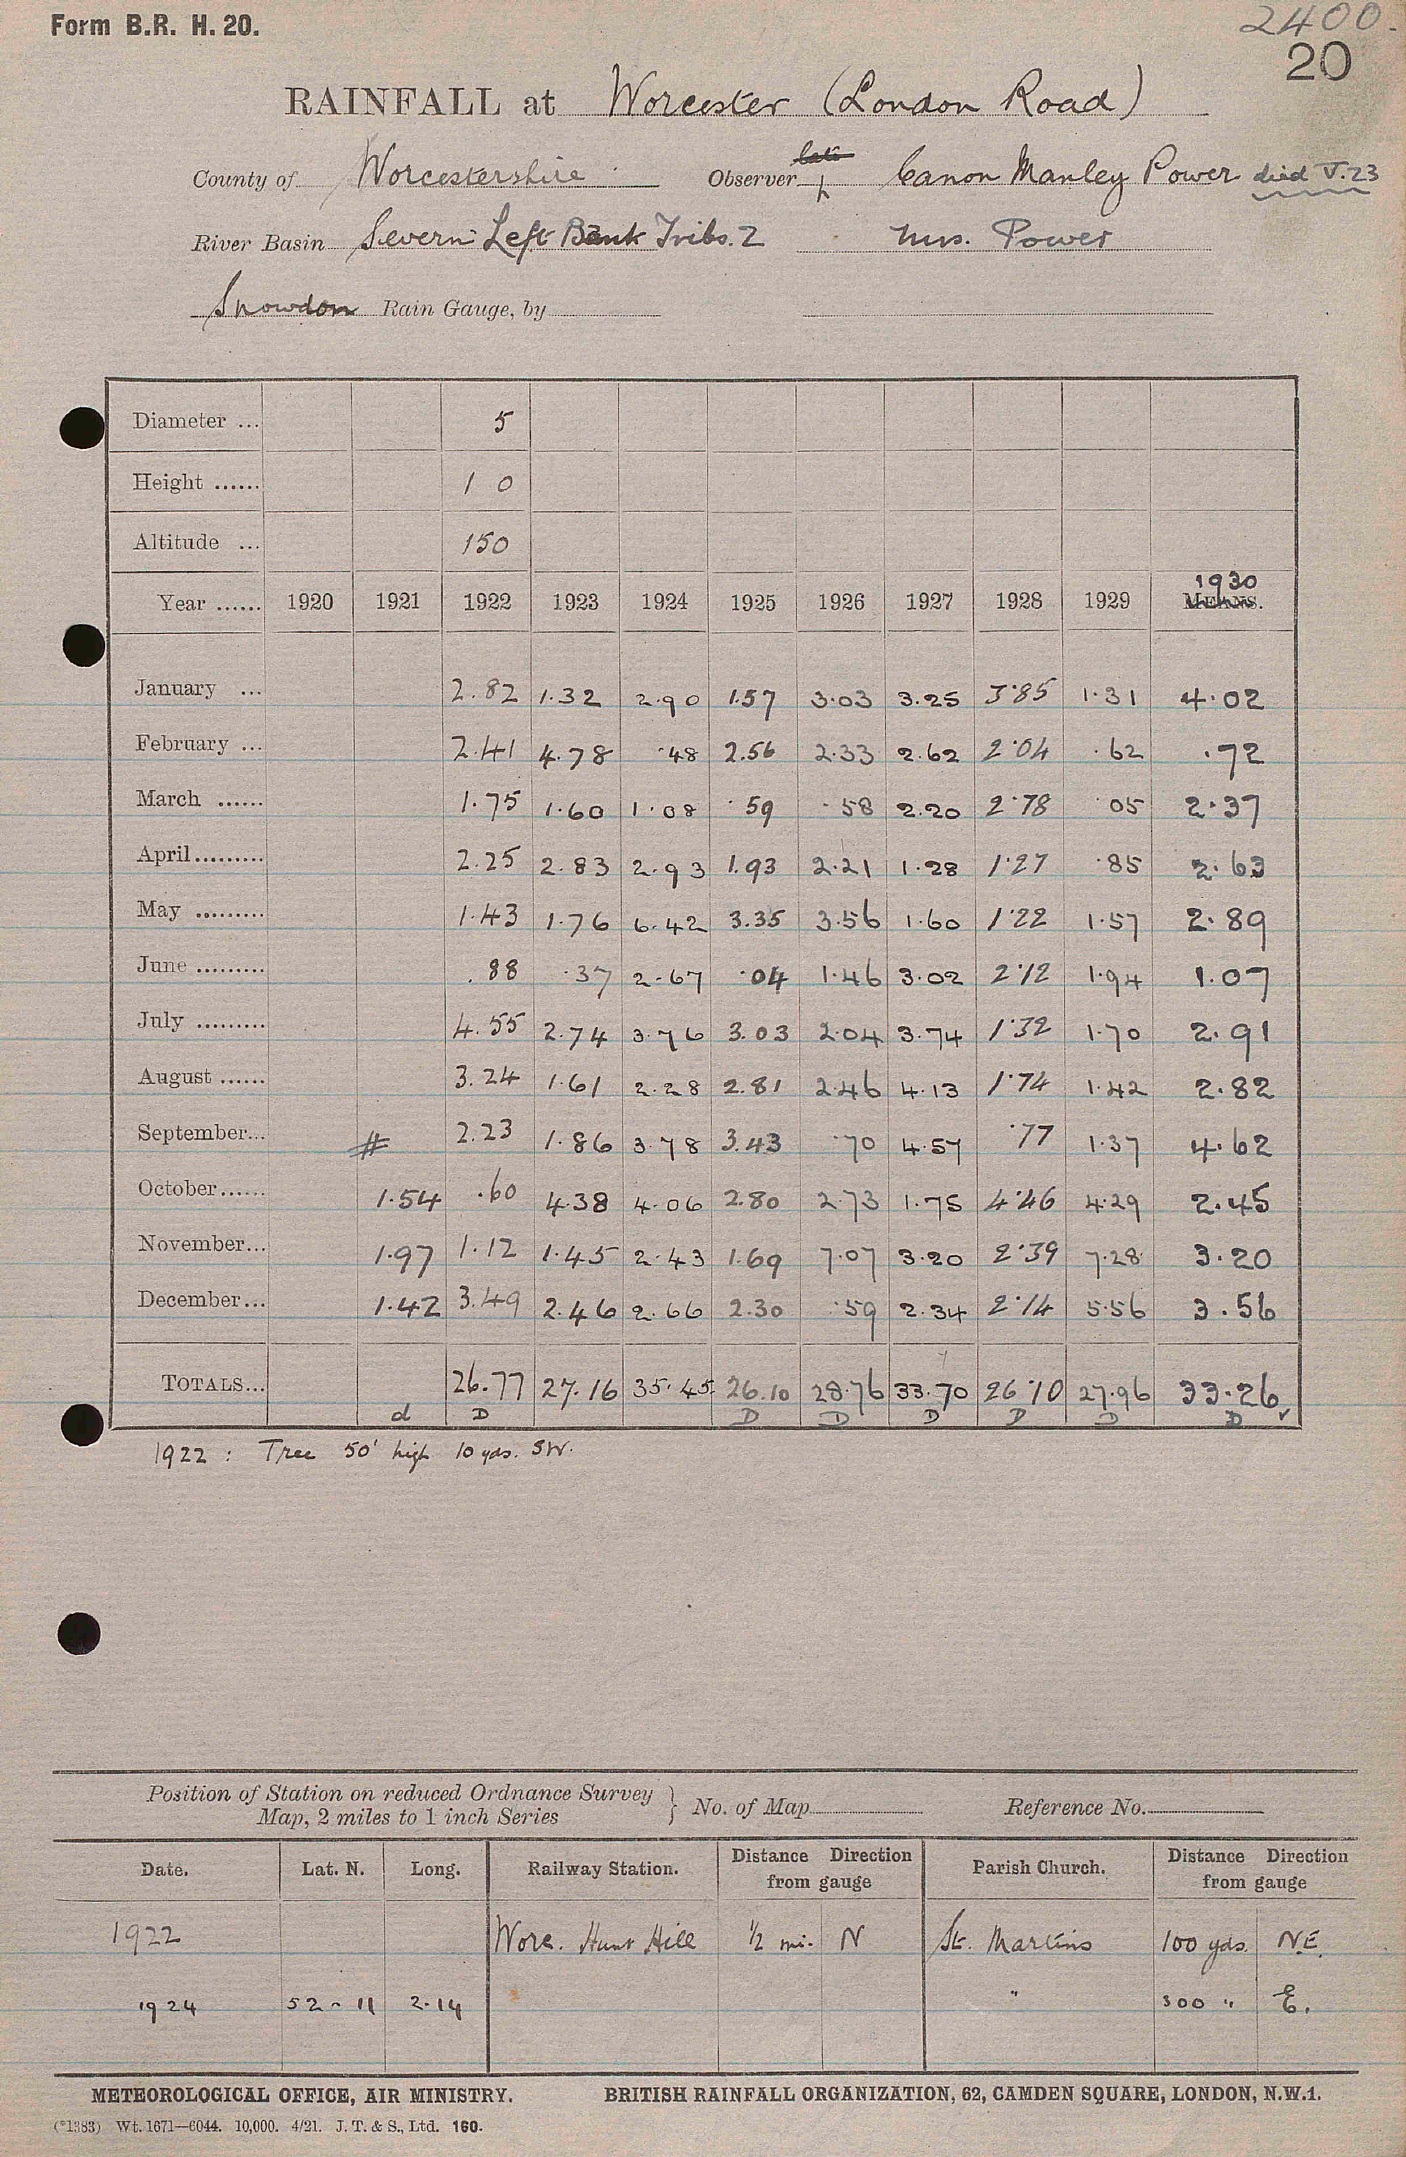 Form B.R. H. 20.
2400.
20
RAINFALL at Worcester (London Road)
County of Worcestershire Observer late Canon Manley Power died V.23
River Basin Severn Left Bank Tribs. 2 Mrs. Power
Snowdon Rain Gauge, by
Diameter ... 5
Height ...... 1 0
Altitude ... 150
1930
Year ...... 1920 1921 1922 1923 1924 1925 1926 1927 1928 1929 MEANS.
January ... 2.82 1.32 2.90 1.57 3.03 3.25 3.85 1.31 4.02
February ... 2.41 4.78 .48 2.56 2.33 2.62 2.04 .62 .72
March ...... 1.75 1.60 1.08 .59 .58 2.20 2.78 .05 2.37
April......... 2.25 2.83 2.93 1.93 2.21 1.28 1.27 .85 2.63
May ......... 1.43 1.76 6.42 3.35 3.56 1.60 1.22 1.57 2.89
June ......... .88 .37 2.67 .04 1.46 3.02 2.12 1.94 1.07
July ......... 4.55 2.74 3.76 3.03 2.04 3.74 1.32 1.70 2.91
August ...... 3.24 1.61 2.28 2.81 2.46 4.13 1.74 1.42 2.82
September... # 2.23 1.86 3.78 3.43 .70 4.57 .77 1.37 4.62
October...... 1.54 .60 4.38 4.06 2.80 2.73 1.75 4.46 4.29 2.45
November... 1.97 1.12 1.45 2.43 1.69 7.07 3.20 2.39 7.28 3.20
December... 1.42 3.49 2.46 2.66 2.30 .59 2.34 2.14 5.56 3.56
TOTALS... 26.77 27.16 35.45 26.10 28.76 33.70 26.10 27.96 33.26
d D D D D D D D
1922 : Tree 50' high 10 yds. SW.
Position of Station on reduced Ordnance Survey
Map, 2 miles to 1 inch Series } No. of Map Reference No.
Date. Lat. N. Long. Railway Station. Distance Direction from gauge Parish Church. Distance Direction from gauge
1922 Worc. Hill ½ mi. N St. Martins 100 yds. N.E.
1924 52-11 2.14 " 300 " E.
METEOROLOGICAL OFFICE, AIR MINISTRY. BRITISH RAINFALL ORGANIZATION, 62, CAMDEN SQUARE, LONDON, N.W.1.
(*1383) Wt. 1671—6044. 10,000. 4/21. J. T. & S., Ltd. 160.